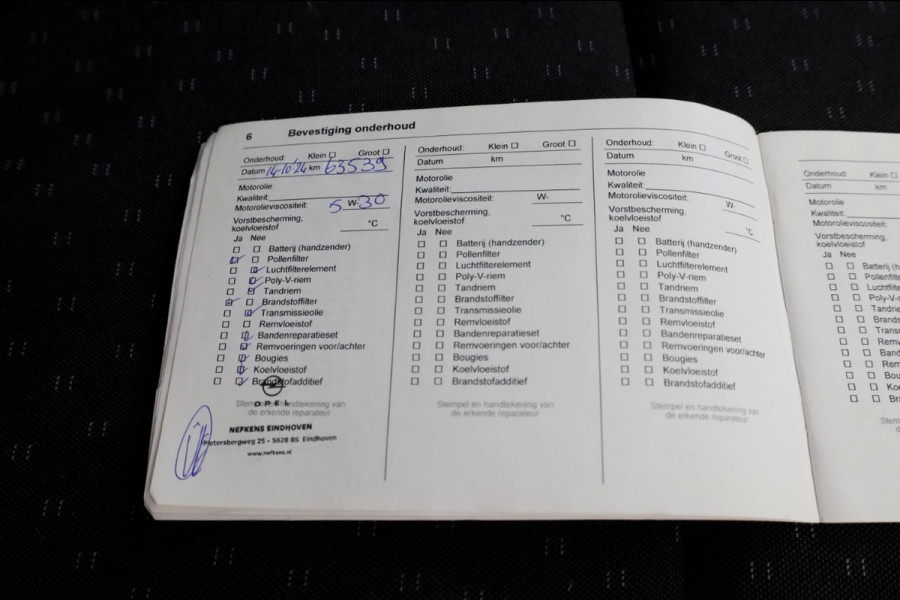 6 Bevestiging onderhoud
Onderhoud: Klein Groot
Datum 14/10/24 km 63539
Motorolie
Kwaliteit:
Motorolieviscositeit: 5 W- 30
Vorstbescherming,
koelvloeistof °C
Ja Nee
Batterij (handzender)
Pollenfilter
Luchtfilterelement
Poly-V-riem
Tandriem
Brandstoffilter
Transmissieolie
Remvloeistof
Bandenreparatieset
Remvoeringen voor/achter
Bougies
Koelvloeistof
Brandstofadditief
OPEL
Stempel en handtekening van
de erkende reparateur
NEFKENS EINDHOVEN
Pietersbergweg 25 - 5628 BS Eindhoven
www.nefkens.nl
Onderhoud: Klein Groot
Datum km
Motorolie
Kwaliteit:
Motorolieviscositeit: W-
Vorstbescherming,
koelvloeistof °C
Ja Nee
Batterij (handzender)
Pollenfilter
Luchtfilterelement
Poly-V-riem
Tandriem
Brandstoffilter
Transmissieolie
Remvloeistof
Bandenreparatieset
Remvoeringen voor/achter
Bougies
Koelvloeistof
Brandstofadditief
Stempel en handtekening van
de erkende reparateur
Onderhoud: Klein Groot
Datum km
Motorolie
Kwaliteit:
Motorolieviscositeit: W-
Vorstbescherming,
koelvloeistof °C
Ja Nee
Batterij (handzender)
Pollenfilter
Luchtfilterelement
Poly-V-riem
Tandriem
Brandstoffilter
Transmissieolie
Remvloeistof
Bandenreparatieset
Remvoeringen voor/achter
Bougies
Koelvloeistof
Brandstofadditief
Stempel en handtekening van
de erkende reparateur
Onderhoud: Klein
Datum km
Motorolie
Kwaliteit:
Motorolieviscositeit:
Vorstbescherming,
koelvloeistof
Ja Nee
Batterij (h
Pollenfilte
Luchtfilte
Poly-V-r
Tandrie
Brands
Trans
Remv
Band
Rem
Bou
Ko
Br
Stem
d